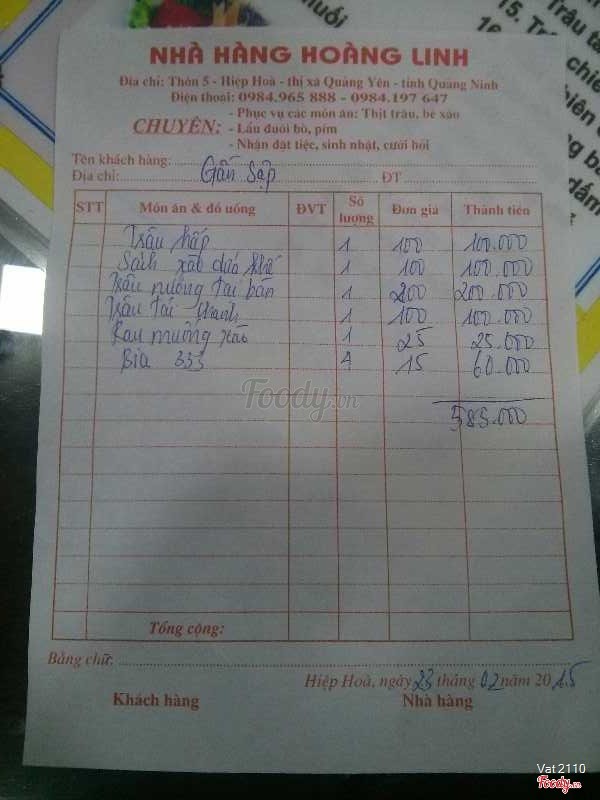 NHÀ HÀNG HOÀNG LINH
Địa chỉ: Thôn 5 - Hiệp Hoà - thị xã Quảng Yên - tỉnh Quảng Ninh
Điện thoại: 0984.965 888 - 0984.197 647
CHUYÊN: - Phục vụ các món ăn: Thịt trâu, bê xào
- Lẩu đuôi bò, pím
- Nhận đặt tiệc, sinh nhật, cưới hỏi
Tên khách hàng:
Địa chỉ: Gần Sập ĐT
STT Món ăn & đồ uống ĐVT Số lượng Đơn giá Thành tiền
Trâu hấp 1 100 100.000
Sách xào dưa 1 100 100.000
Trâu nướng tại bàn 1 200 200.000
Trâu tái chanh 1 100 100.000
Rau muống xào 1 25 25.000
Bia 333 4 15 60.000
585.000
Tổng cộng:
Bằng chữ:
Hiệp Hoà, ngày 23 tháng 02 năm 2015
Khách hàng Nhà hàng
Foody.vn
Vat2110
Foody.vn
15. Trâu
16.